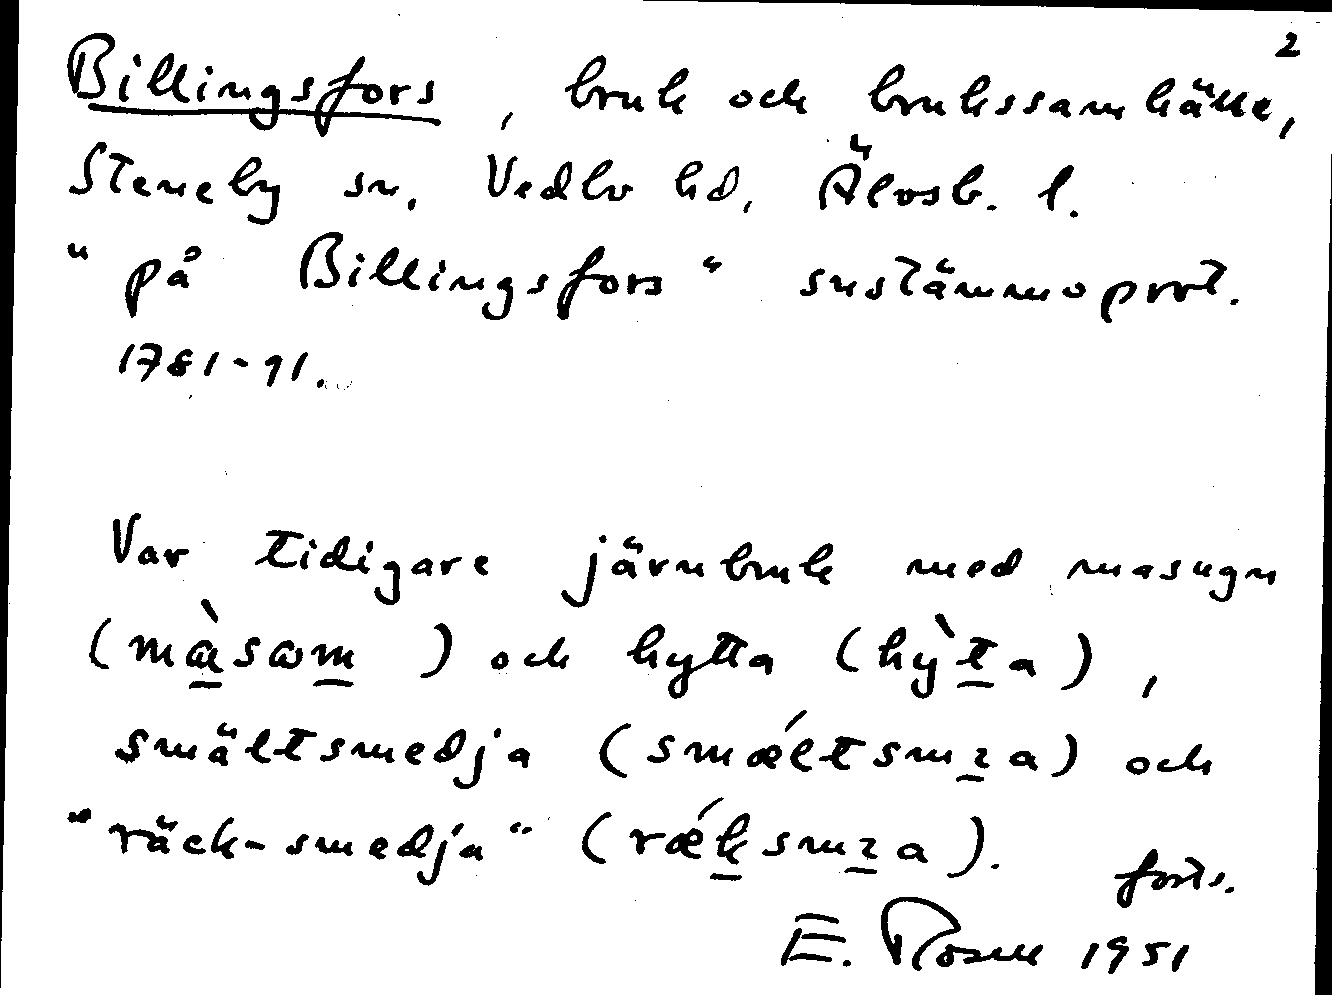 2
Billingsfors, bruk och brukssamhälle,
Steneby sn, Vedbo hd, Älvsb. l.
"på Billingsfors" snstämmoprot.
1781-91.
Var tidigare järnbruk med masugn
(màsωm) och hytta (hỳta),
smältsmedja (smǽltsmza) och
"räck-smedja" (rǽksmza).
forts.
E. Rosell 1951